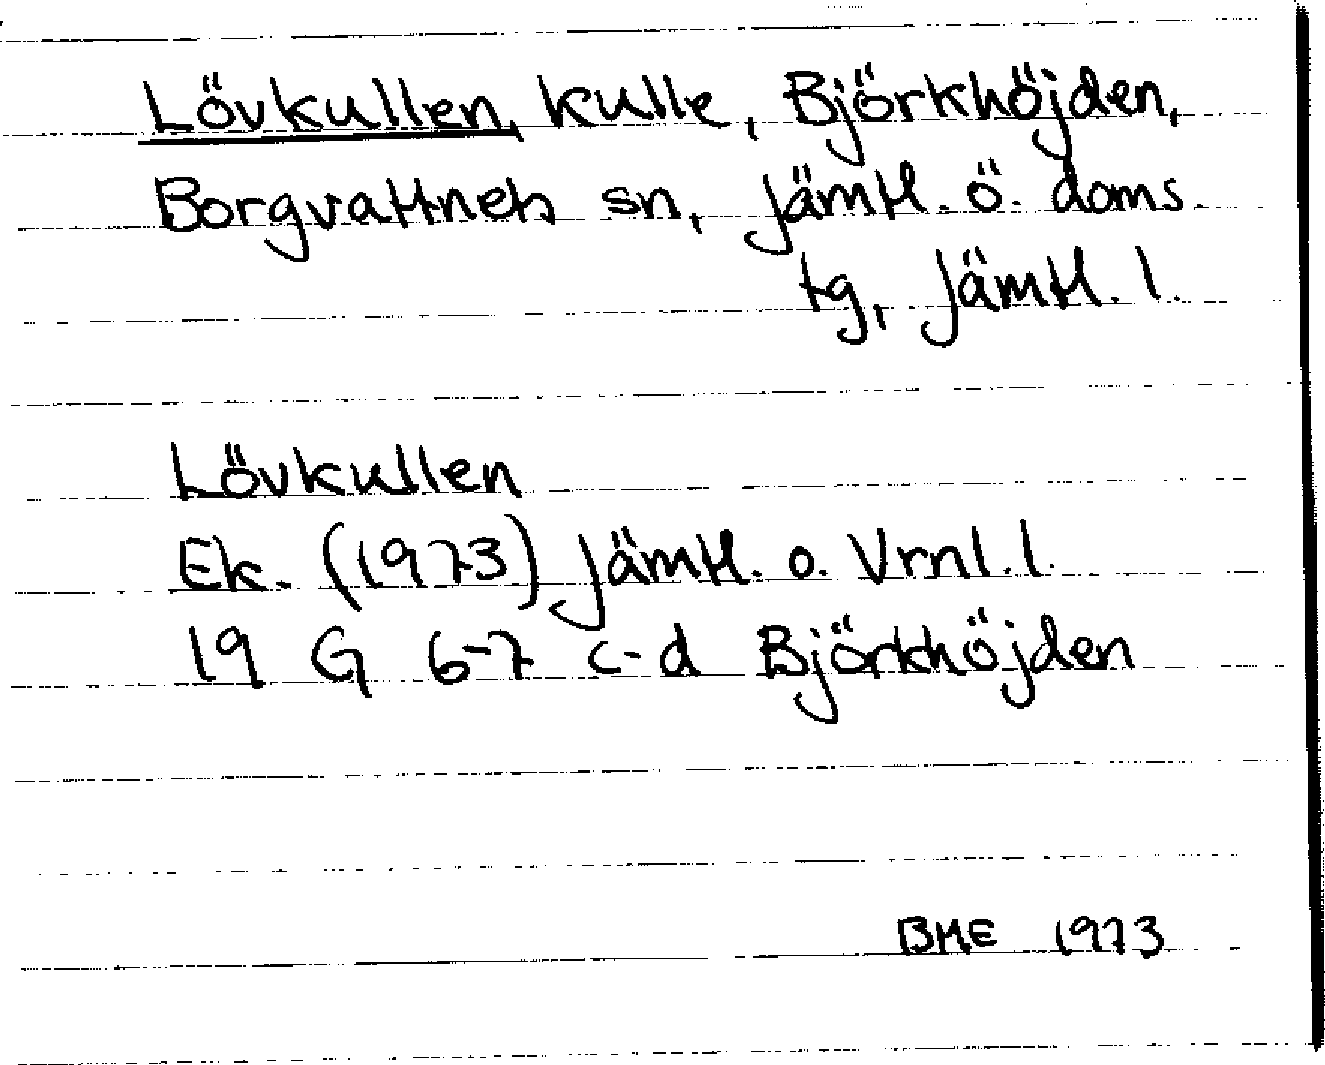 Lövkullen, kulle, Björkhöjden,
Borgvattnets sn, Jämtl. ö. doms.
tg, Jämtl. l.
Lövkullen
Ek. (1973) Jämtl. o. Vrnl. l.
19 G 6-7 c-d Björkhöjden
BME 1973